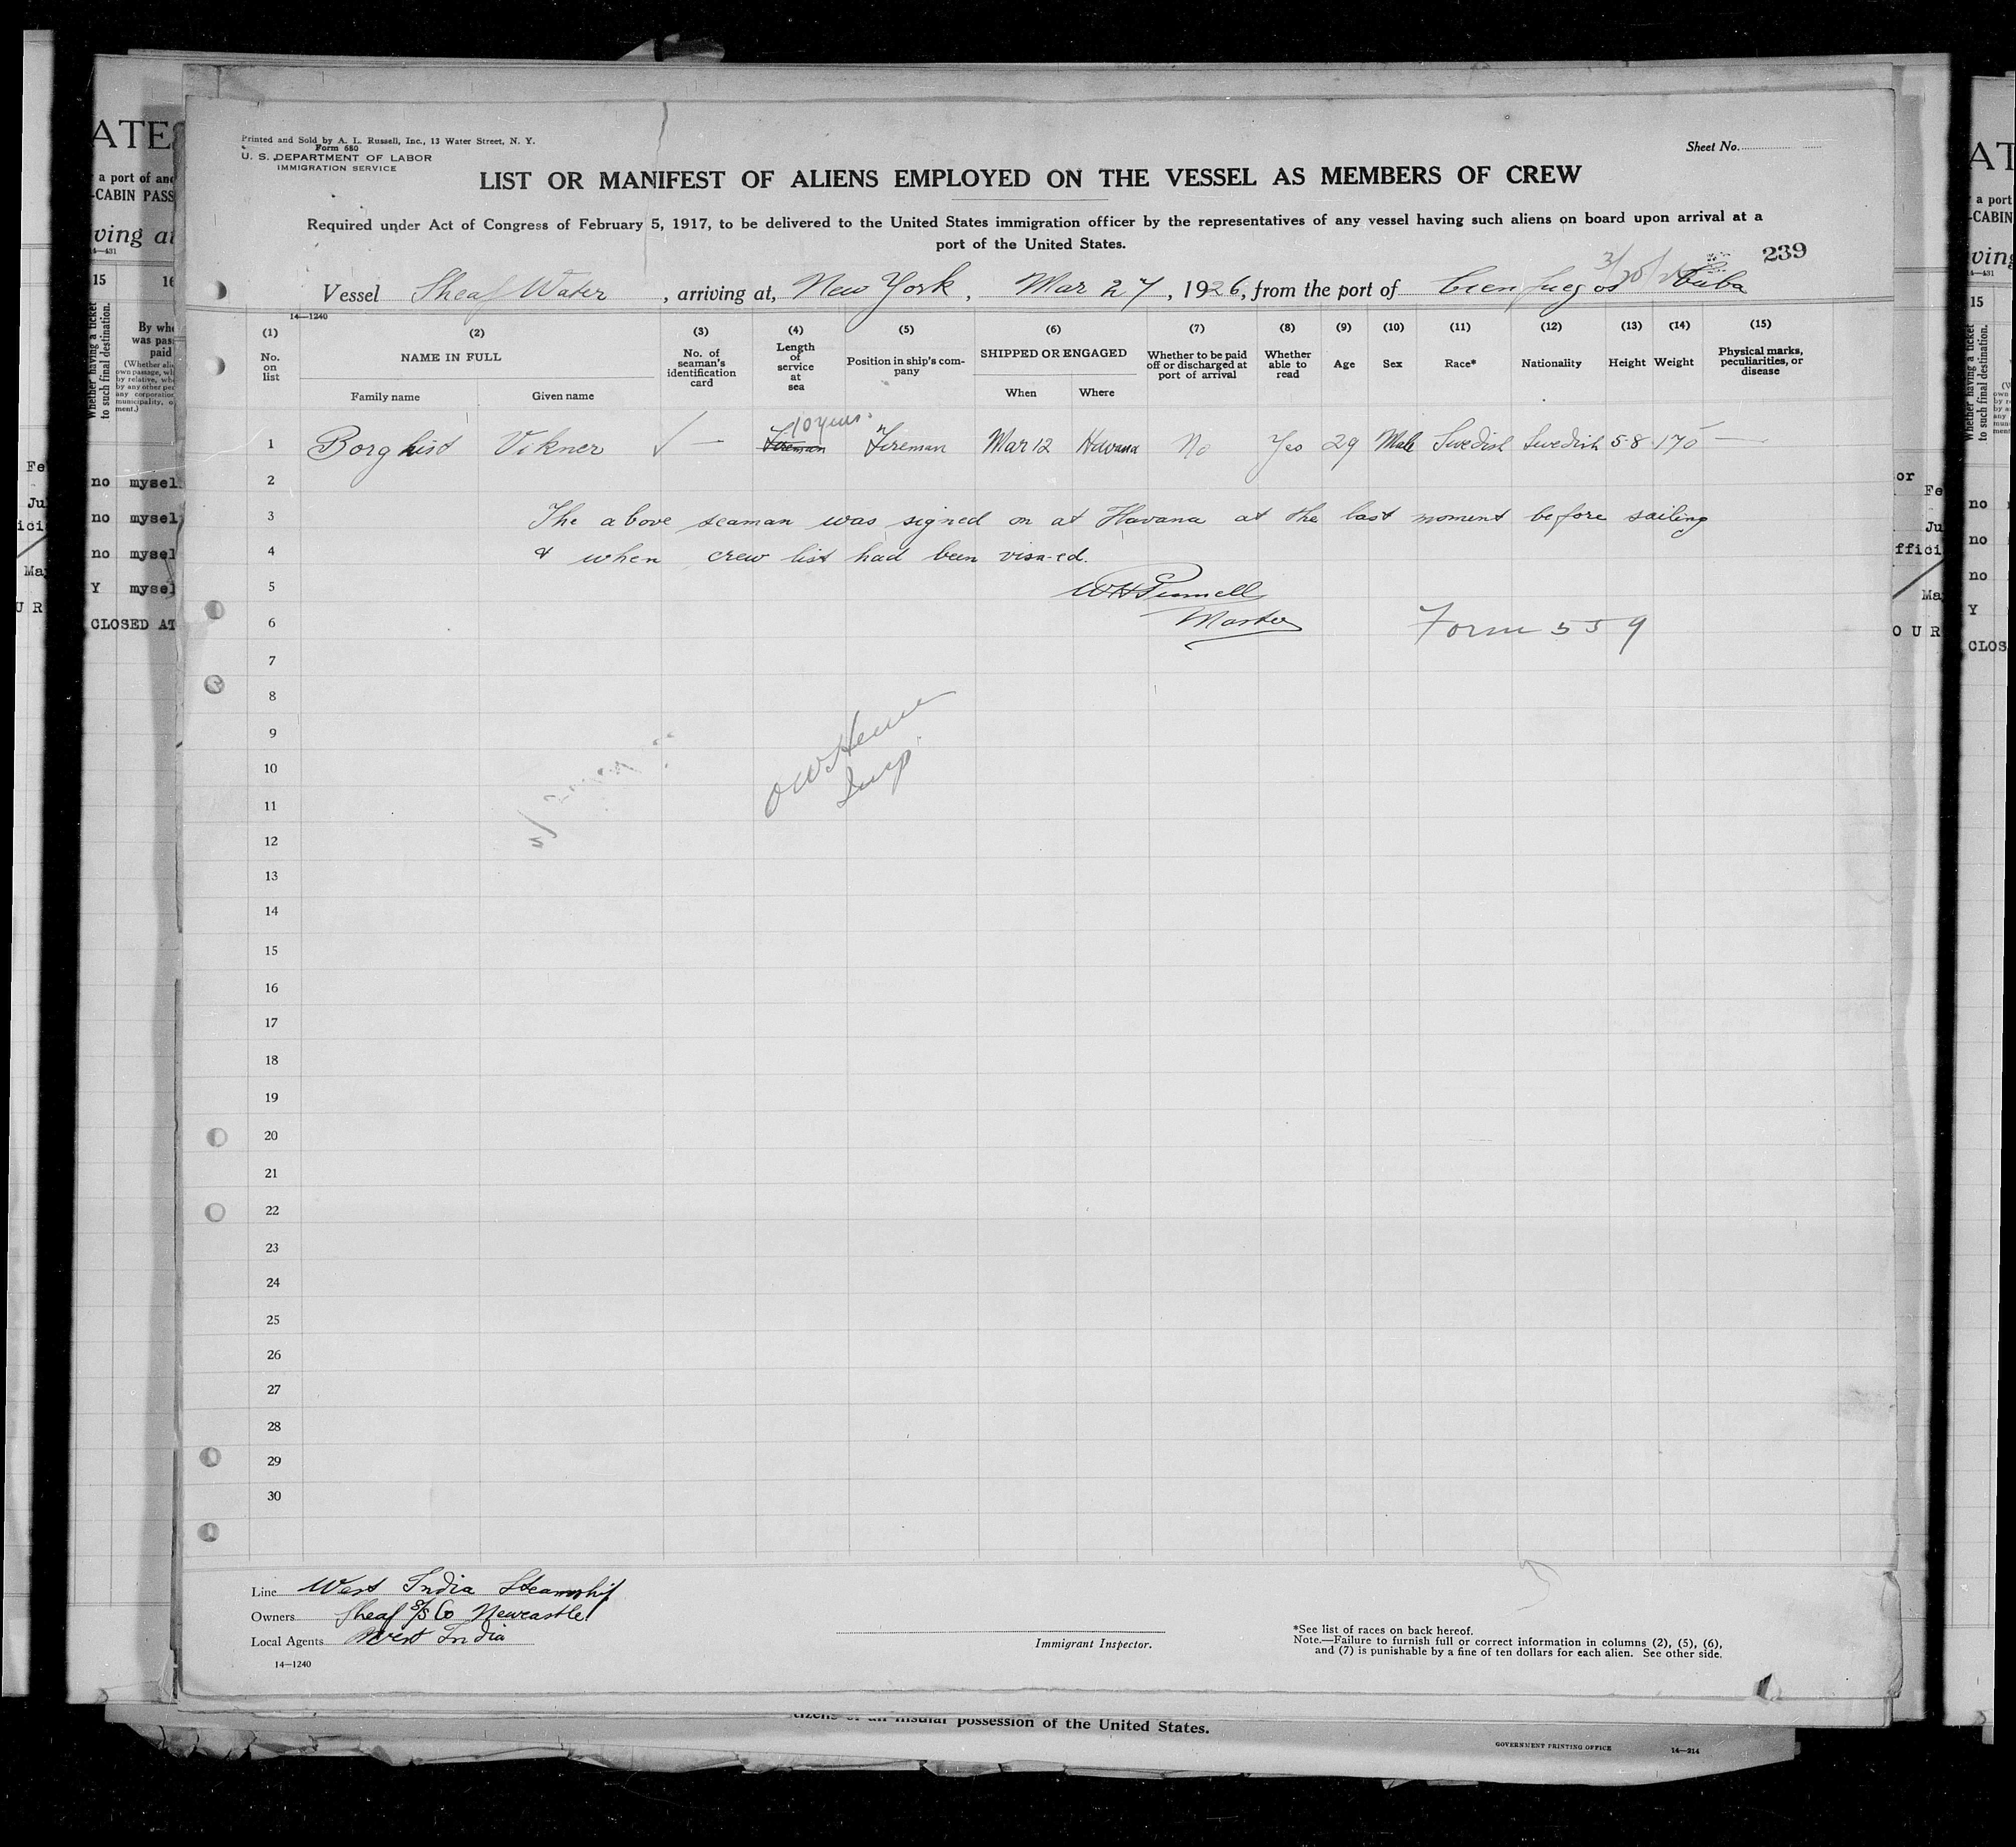 Printed and Sold by A. L. Russell, Inc., 13 Water Street, N. Y.
Form 680
U. S. DEPARTMENT OF LABOR
IMMIGRATION SERVICE
Sheet No.
LIST OR MANIFEST OF ALIENS EMPLOYED ON THE VESSEL AS MEMBERS OF CREW
Required under Act of Congress of February 5, 1917, to be delivered to the United States immigration officer by the representatives of any vessel having such aliens on board upon arrival at a
port of the United States.
239
Vessel Sheaf Water, arriving at, New York, Mar 27, 1926, from the port of Cienfuegos Cuba
14—1240
(1) (2) (3) (4) (5) (6) (7) (8) (9) (10) (11) (12) (13) (14) (15)
No. on list
NAME IN FULL
Family name Given name
No. of seaman's identification card
Length of service at sea
Position in ship's company
SHIPPED OR ENGAGED
When Where
Whether to be paid off or discharged at port of arrival
Whether able to read
Age Sex Race* Nationality Height Weight
Physical marks, peculiarities, or disease
10 years
1 Borghist Vikner √ — Fireman Fireman Mar 12 Havana No Yes 29 Male Swedish Swedish 5 8 170 —
2
3 The above seaman was signed on at Havana at the last moment before sailing
4 & when crew list had been visa-ed.
5
6 Master Form 559
7
8
9
10
11
12
13
14
15
16
17
18
19
20
21
22
23
24
25
26
27
28
29
30
Line West India Steamship
Owners Sheaf S/S Co Newcastle
Local Agents West India
14—1240
Immigrant Inspector.
*See list of races on back hereof.
Note.—Failure to furnish full or correct information in columns (2), (5), (6),
and (7) is punishable by a fine of ten dollars for each alien. See other side.
possession of the United States.
GOVERNMENT PRINTING OFFICE
14—214